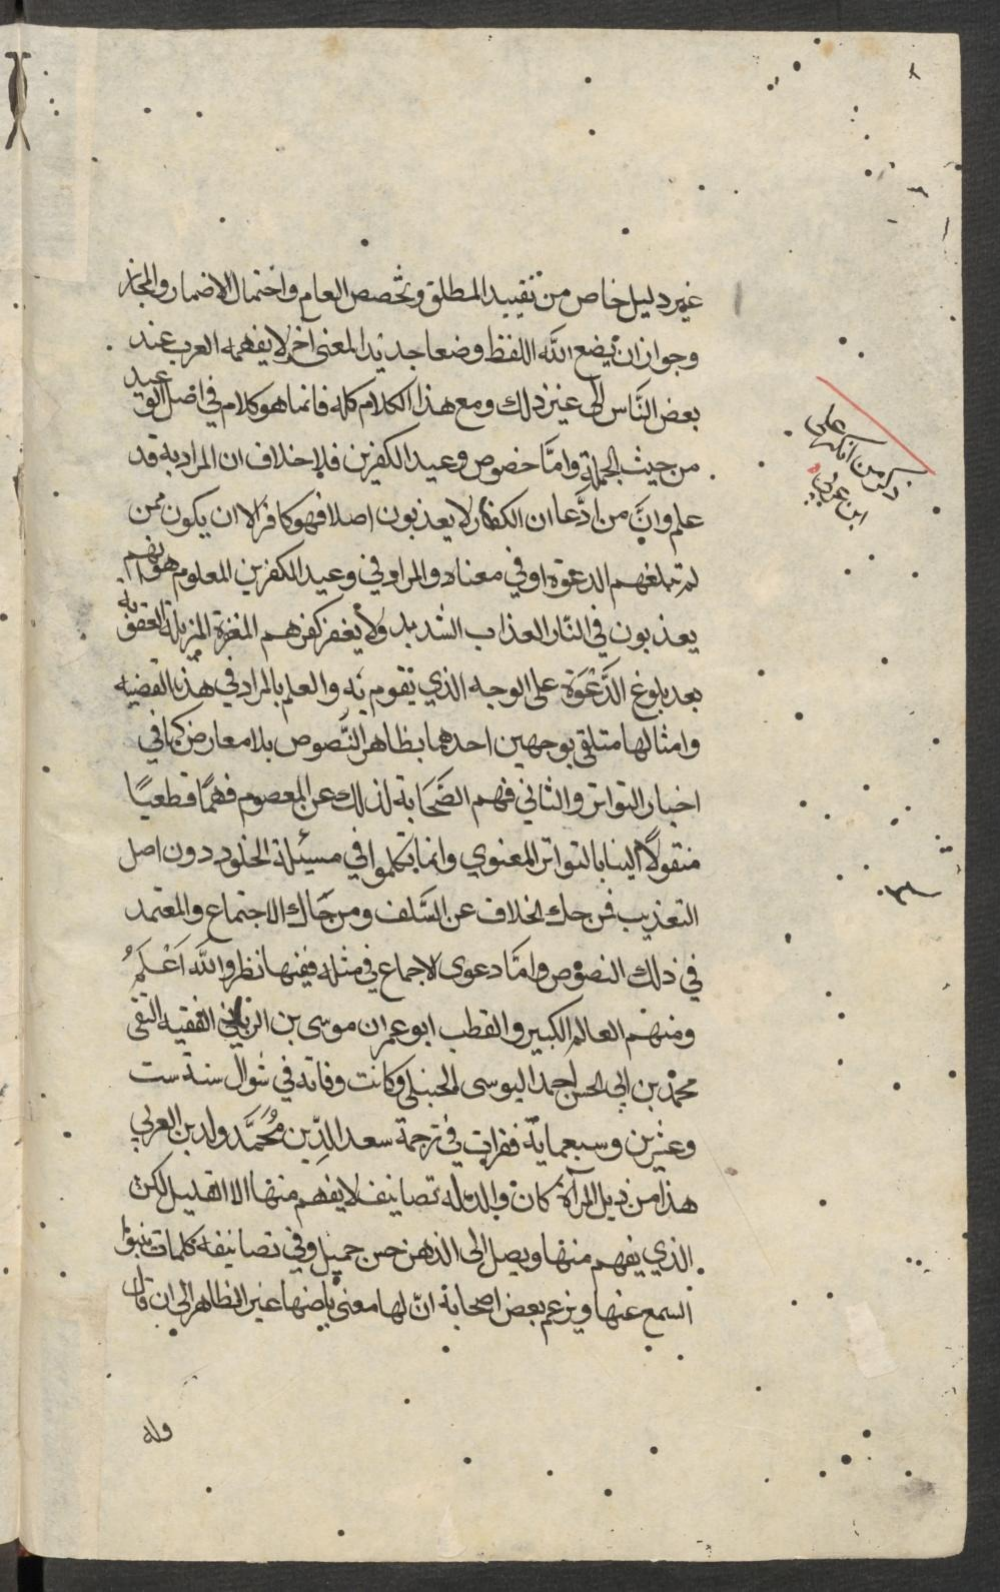 غير دليل خاص من تقييد المطلق وتخصص العام واحتمال الاضمار والمجاز
وجواز ان يضع الله اللفظ وضعا جديدا لمعنى اخر لا يفهمه العرب عند
بعض الناس الى غير ذلك ومع هذا الكلام كله فانما هو كلام في اصل الوعيد
من حيث الجملة وامَّا خصوص وعيد الكفرين فلا خلاف ان المراد به قد
علم وانَّ من ادَّعا ان الكفار لا يعذبون اصلا فهو كافر الا ان يكون ممن
لم تبلغهم الدعوة او في معناه والمراد في وعيد الكفرين المعلوم هو انهم
يعذبون في النّار العذاب الشديد ولا يغفر كفرهم المغفرة المزيلة للعقوبة
بعد بلوغ الدَّعْوَة على الوجه الذي تقوم به والعلم بالمراد في هذه القضيه
وامثالها متلقى بوجهين احدهما بظاهر النَّصوص بلا معارض كما في
اخبار التواتر والثاني فهم الصَّحَابة لذلك عن المعصوم فهمًا قطعيًا
منقولًا الينا بالتواتر المعنوي وانما تكلموا في مسئلة الخلود دون اصل
التعذيب فمن حك الخلاف عن السَّلف ومن حاك الاجتماع والمعتمد
في ذلك النصوص وامَّا دعوى الاجماع في مثله ففيها نظر والله اَعْلَمُ
ومنهم العالم الكبير والقطب ابو عمران موسى بن الفقيه التقى
محمّد بن ابي الحسن احمد اليوسى الحنبلي وكانت وفاته في شوال سنة ست
وعشرين وسبعماية فقرات في ترجمة سعد الدِّين مُحَمَّد ولد بن العربي
هذا من ذيل المرآة كان والده له تصانيف لا يفهم منها الا القليل لكن
الذي يفهم منها ويصل الى الذهن حسن جميل وفي تصانيفه كلمات ينبوا
السمع عنها ويزعم بعض اصحابه انّ لها معنى باضنها غير الظاهر الى ان قال
وله
ذكر من انكر على
ابن عربي